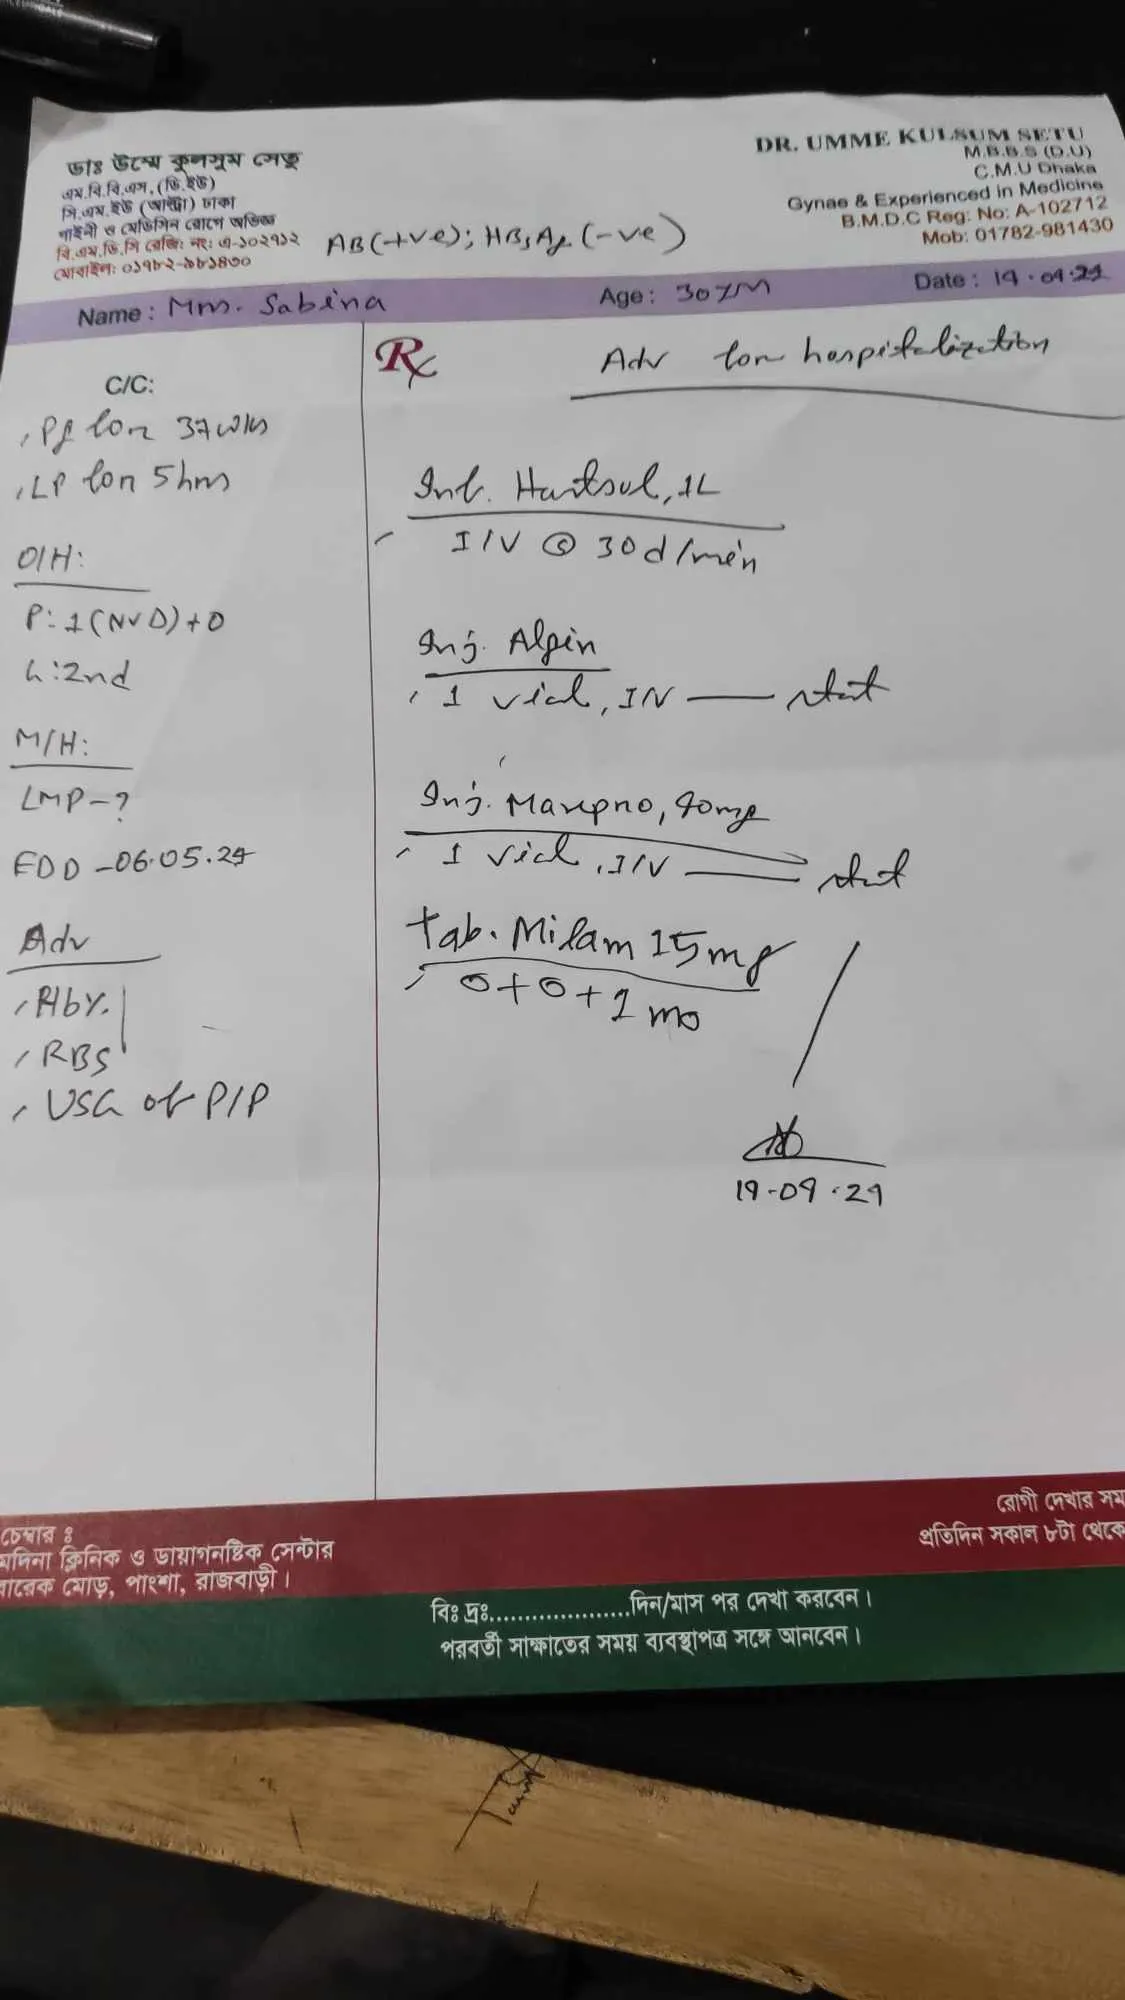 ডাঃ উম্মে কুলসুম সেতু
এম.বি.বি.এস, (ডি.ইউ)
সি.এম.ইউ (আল্ট্রা) ঢাকা
গাইনী ও মেডিসিন রোগে অভিজ্ঞ
বি.এম.ডি.সি রেজি: নং: এ-১০২৭১২
মোবাইল: ০১৭৮২-৯৮১৪৩০
DR. UMME KULSUM SETU
M.B.B.S (D.U)
C.M.U Dhaka
Gynae & Experienced in Medicine
B.M.D.C Reg: No: A-102712
Mob: 01782-981430
AB(+ve); HBsAg (-ve)
Name : Mrs. Sabina
Age : 30
Date : 19.04.24
C/C:
Pg for 37wks
LP for 5hrs
O/H:
P:1(NVD)+0
G:2nd
M/H:
LMP-?
EDD -06.05.24
Adv
Hb%
RBS
USG of P/P
Rx
Adv for hospitalization
Inf. Hartsol, 1L
I/V @ 30d/min
Inj. Algin
1 vial, IV — stat
Inj. Maxpro, 40mg
1 vial, I/V — stat
tab. Milam 15mg
0+0+1
19-04-24
চেম্বার ঃ
মদিনা ক্লিনিক ও ডায়াগনষ্টিক সেন্টার
মোড়, পাংশা, রাজবাড়ী।
রোগী দেখার সম
প্রতিদিন সকাল ৮টা থেকে
বিঃ দ্রঃ....................দিন/মাস পর দেখা করবেন।
পরবর্তী সাক্ষাতের সময় ব্যবস্থাপত্র সঙ্গে আনবেন।